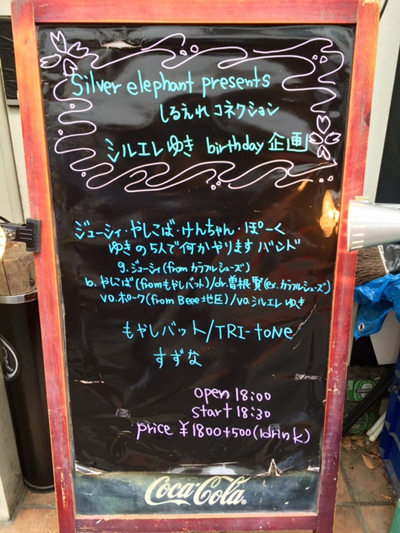 Silver elephant presents
しるえれ コネクション
シルエレ ゆき birthday 企画
ジューシィ・やしこば・けんちゃん・ぽーく
ゆきの5人で何かやりますバンド
g. ジューシィ (from カラフルシューズ)
b. やしこば (from もやしバット)/dr. 曽根賢 (ex. カラフルシューズ)
vo. ポーク (from Beee地区)/vo. シルエレ ゆき
もやしバット/TRI-toNe
すずな
open 18:00
start 18:30
price ¥1800+500(1drink)
Coca-Cola